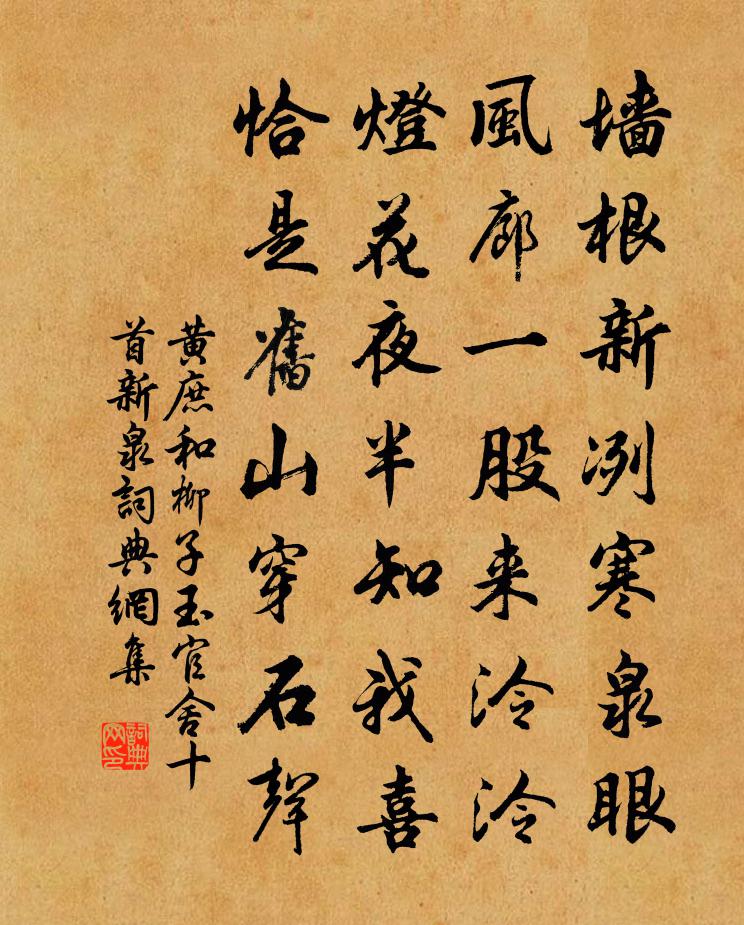 墙根新冽寒泉眼
風廊一股来泠泠
燈花夜半知我喜
恰是舊山穿石聲
黄庶和柳子玉官舍十
首新泉詞典網集
詞典
网印